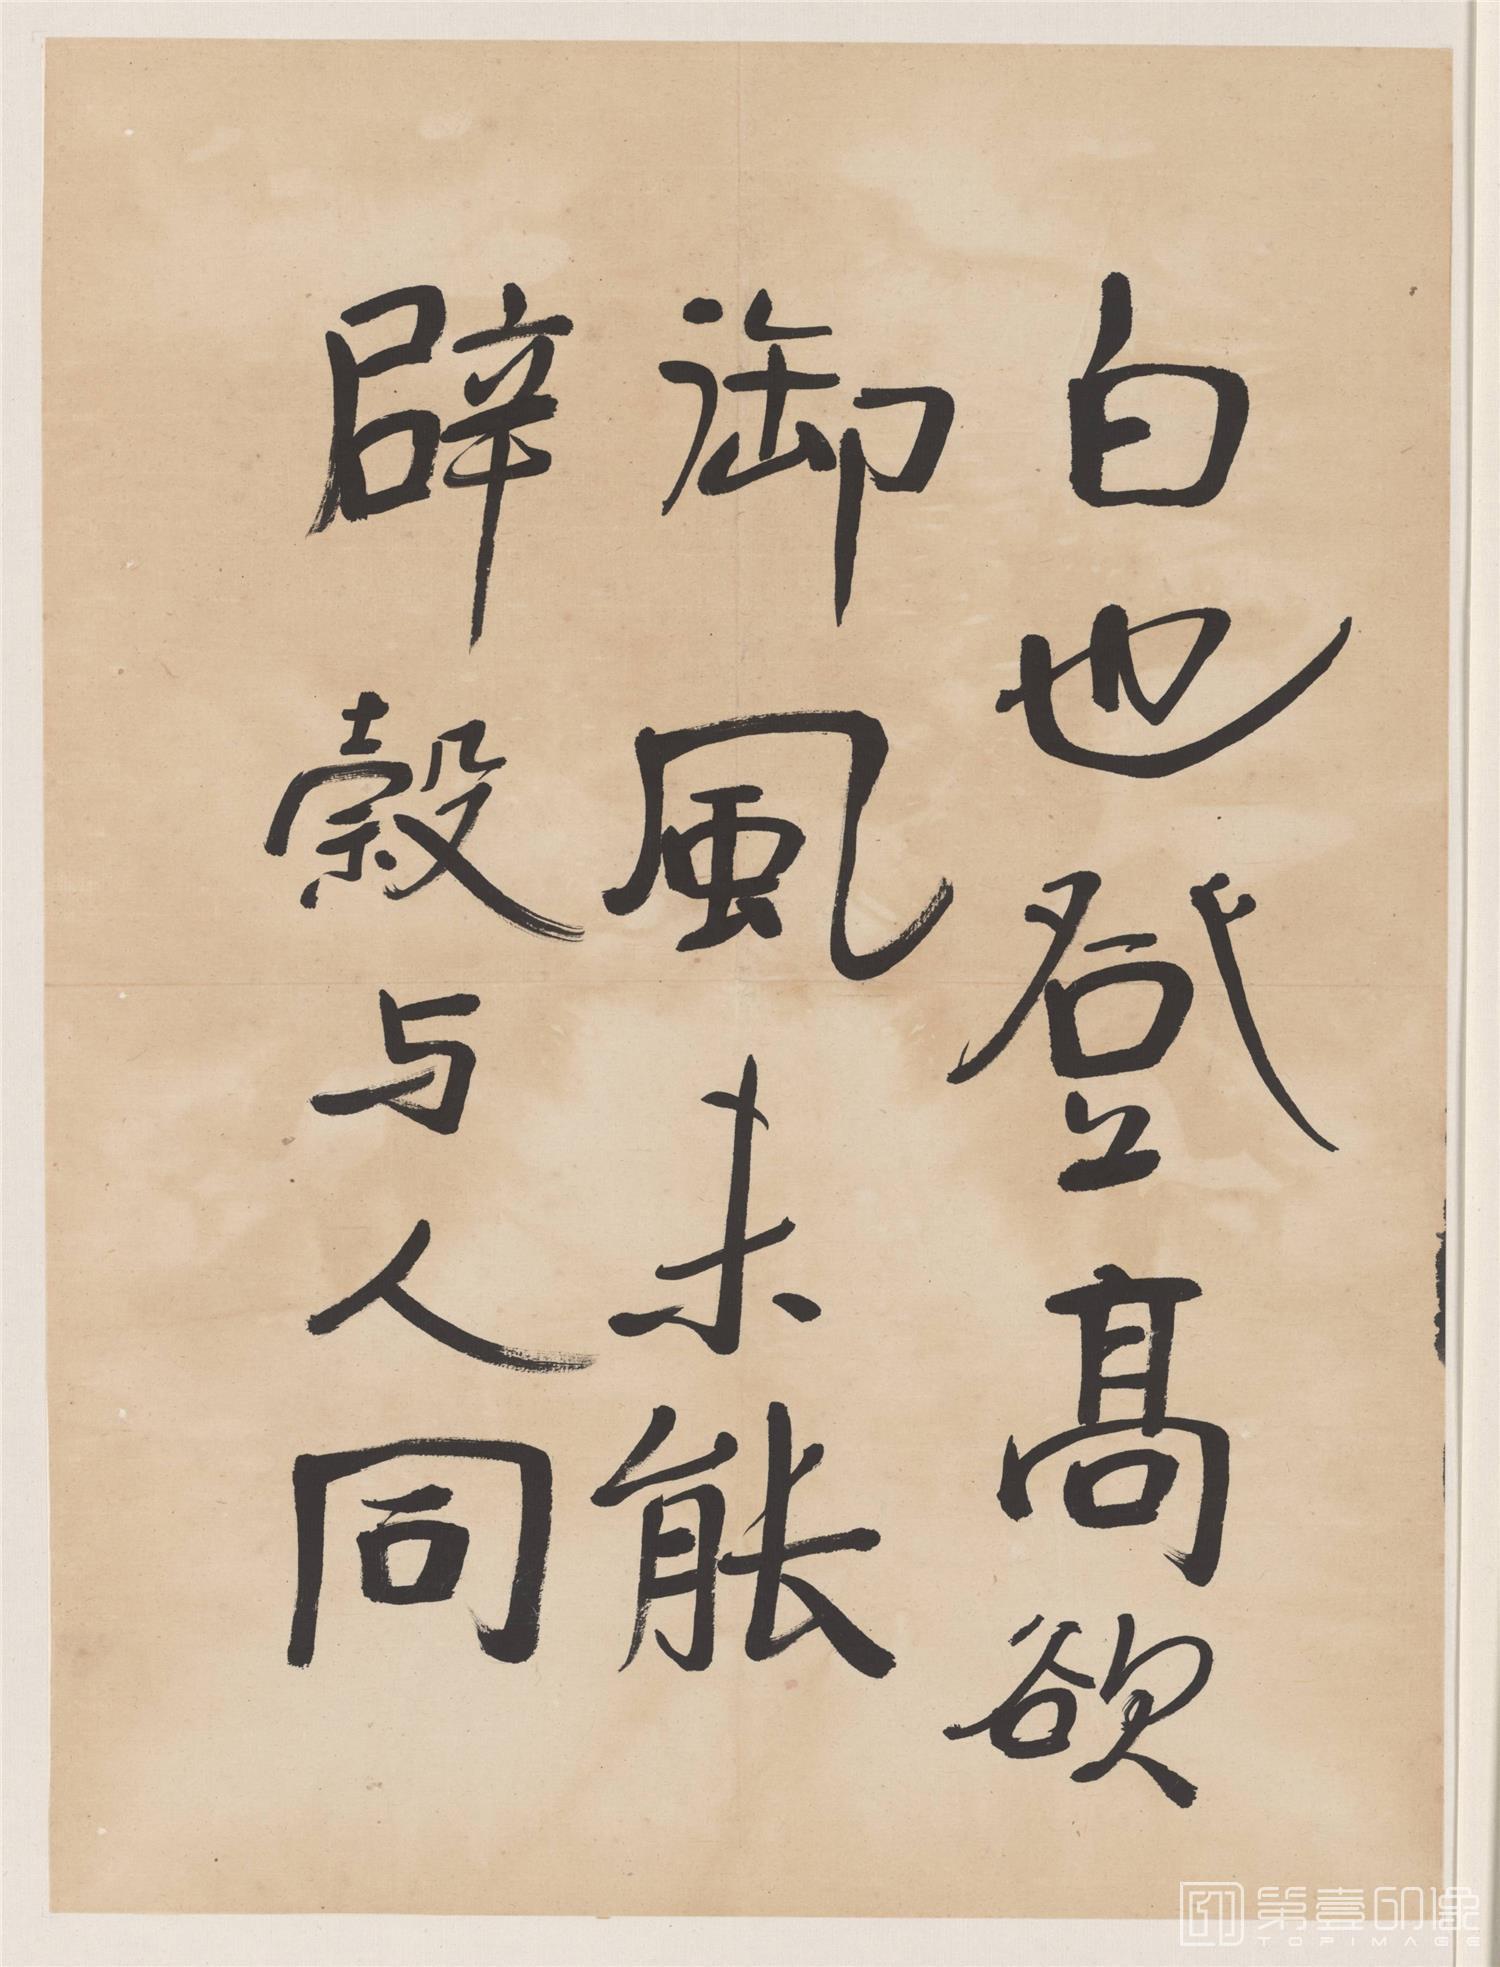 白也登高欲
御風未能
辟穀与人同
第壹印像
TOPIMAGE